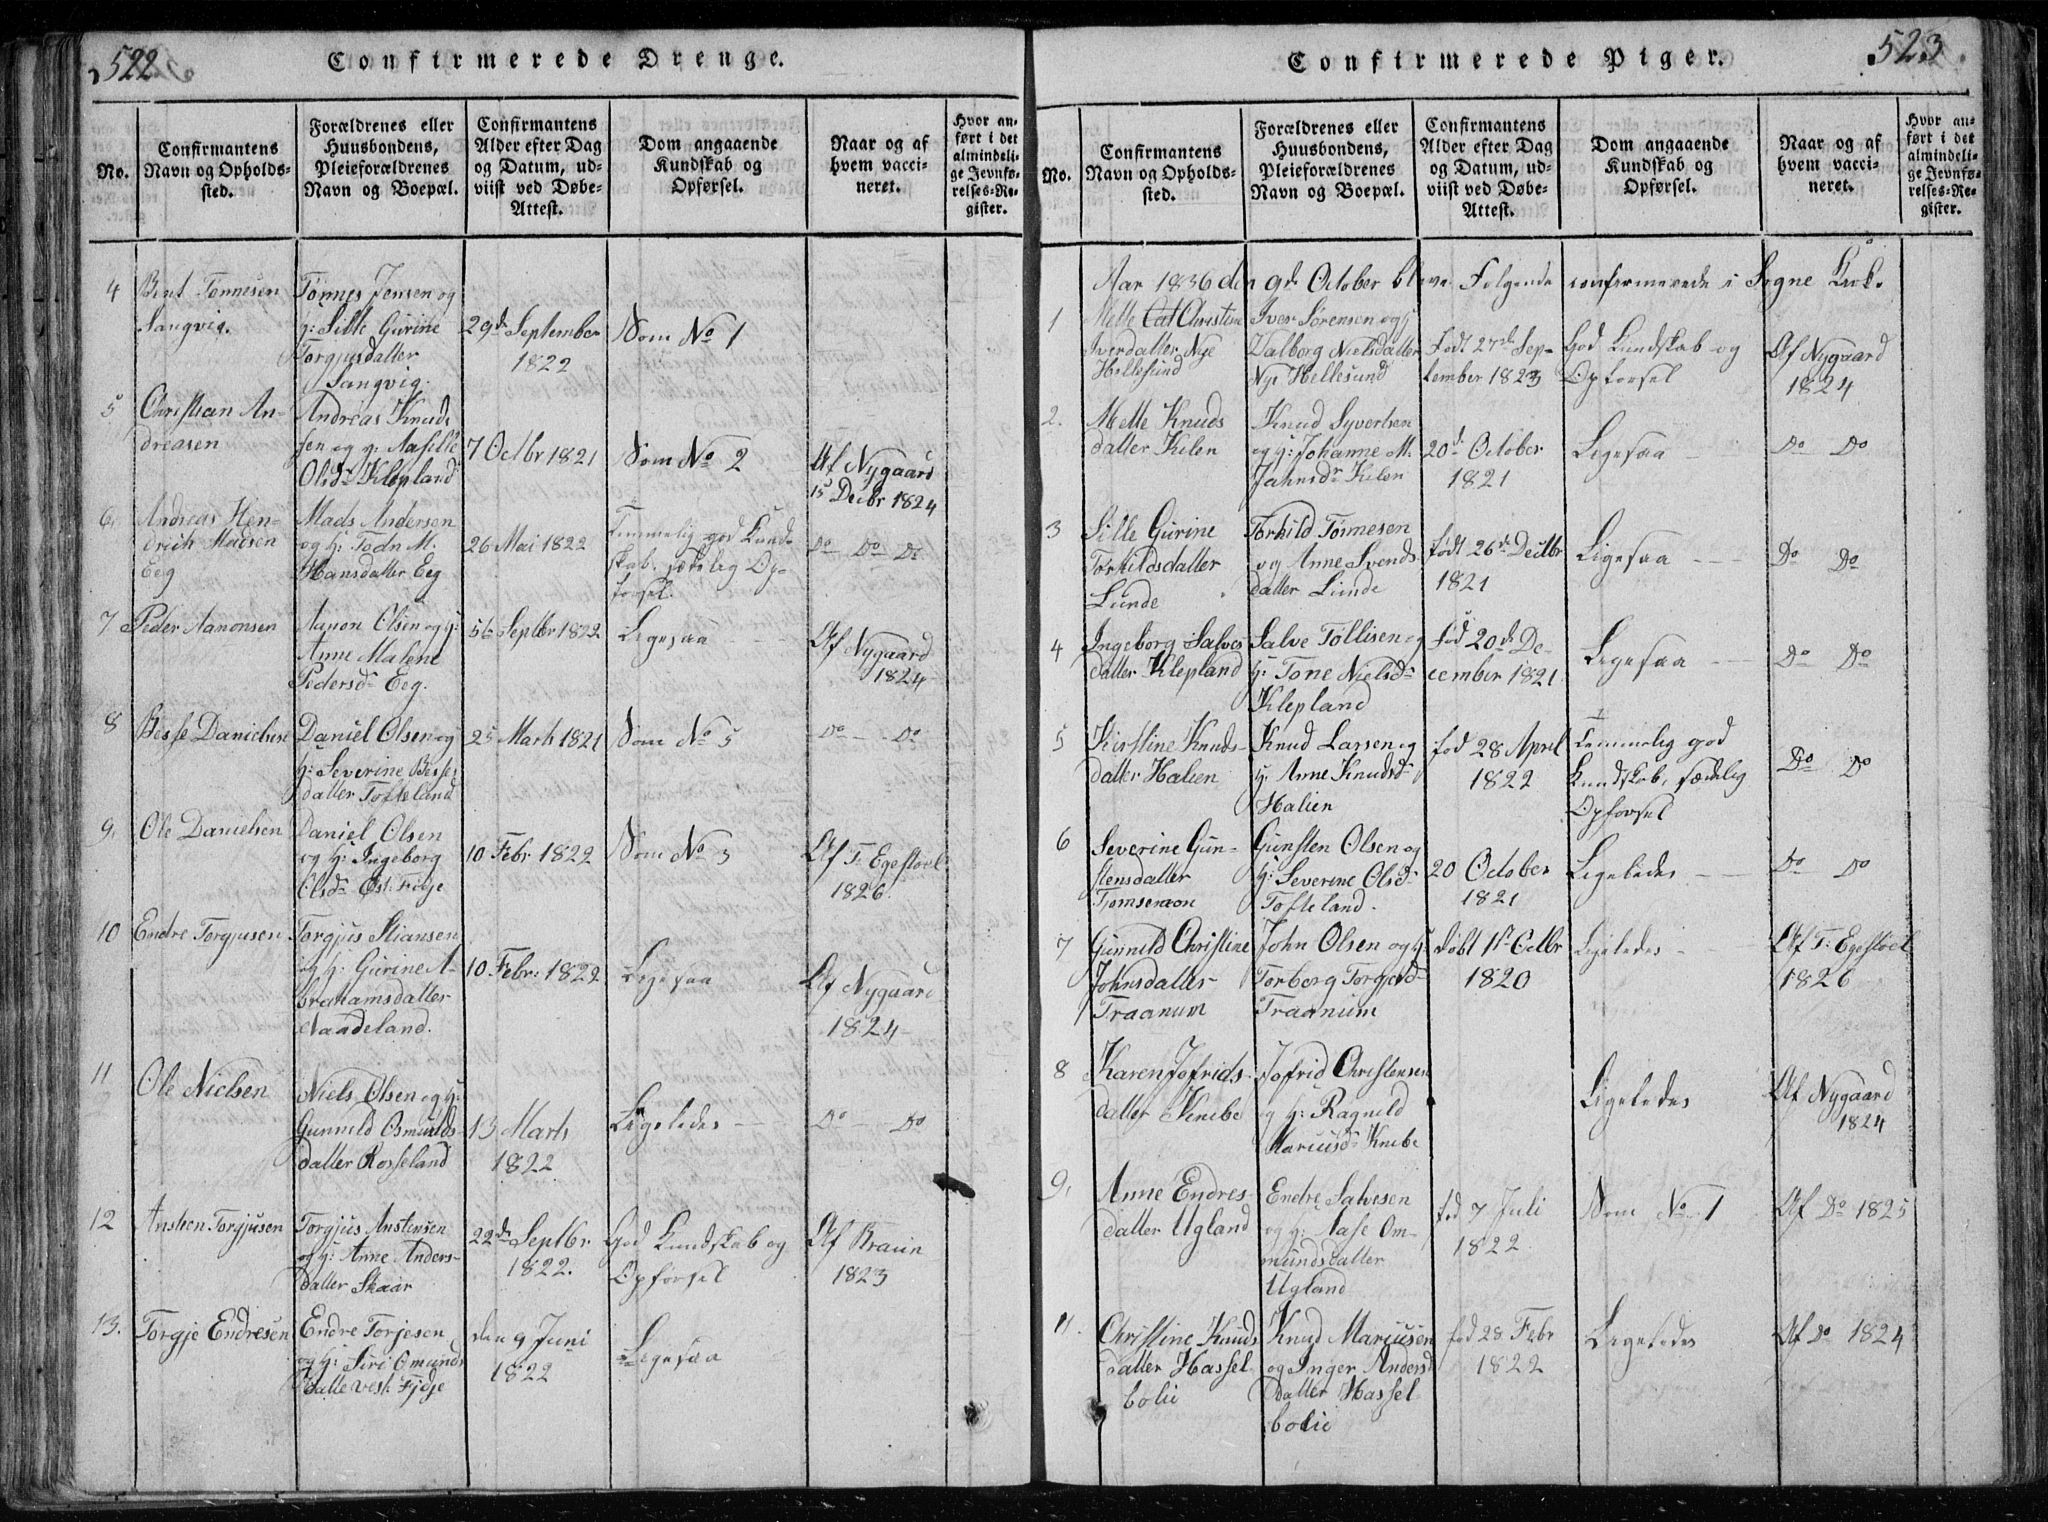 522
Confirmerede Drenge.
No.
Confirmantens
Navn og Opholds-
sted.
Forældrenes eller
Huusbondens,
Pleieforældrenes
Navn og Boepæl.
Confirmantens
Alder efter Dag
og Datum, ud-
viist ved Døbe-
Attest.
Dom angaaende
Kundskab og
Opførsel.
Naar og af
hvem vacci-
neret.
Hvor an-
ført i det
almindeli-
ge Jevnfø-
relses-Re-
gister.
4
Bent Tønnesen
Langvig.
Tønnes Jensen og
h: Sille Gurine
Torgjusdatter
Langvig.
29de September
1822
Som No 1
5
Christian An-
dreasen
Andreas Knud-
sen og h: Aasille
Olsdr Klepland
7 Octbr 1821
Som No 2
Af Nygaard
15 Decbr 1824
6.
Andreas Hen-
drich Madsen
Eeg
Mads Andersen
og h: Todn M:
Hansdatter Eeg
26 Mai 1822
Temmelig god Kund-
skab, sædelig Op-
førsel.
Do Do Do
7
Peder Aanonsen
Aanon Olsen og h:
Anne Malene
Pedersdr Eeg.
56 Septbr 1822
Ligesaa
Af Nygaard
1824
8
Besse Danielsen
Daniel Olsen og
h: Severine Besses
datter Tofteland
25 Marts 1821
Som No 5
Do Do
9.
Ole Danielsen
Daniel Olsen
og h: Ingeborg
Olsdr Øst. Fidje
10 Febr 1822
Som No 3
Af T: Egestöel
1826
10
Endre Torgjusen
Torgjus Stiansen
og h: Gurine A-
brahamsdatter
Naadeland.
10 Febr: 1822
Ligesaa
Af Nygaard
1824
11
Ole Nielsen
Niels Olsen og h:
Gunnild Osmunds-
datter Rosseland
13 Marts
1822
Ligeledes
Do Do
12
Ansten Torgjusen
Torgjus Anstensen
og h: Anne Anders-
datter Skaar
22de Septbr
1822.
God Kundskab og
Opførsel
Af Braun
1823
13.
Torgje Endresen
Endre Torjesen
og h: Siri Omunds
datte Vest. Fjdje
den 9 Juni
1822
Ligesaa
523
Confirmerede Piger.
No.
Confirmantens
Navn og Opholds-
sted.
Forældrenes eller
Huusbondens,
Pleieforældrenes
Navn og Boepæl.
Confirmantens
Alder efter Dag
og Datum, ud-
viist ved Døbe-
Attest.
Dom angaaende
Kundskab og
Opførsel.
Naar og af
hvem vacci-
neret.
Hvor an-
ført i det
almindeli-
ge Jevnfø-
relses-Re-
gister.
Aar 1836 den 9de October bleve Følgende confermerede i Sogne Kirk.
1
Mette Cat Christine
Iverdatter Nye
Hellesund
Iver Sørensen og h
Valborg Nielsdatter
Nye Hellesund
Født 27de Sep-
tember 1823
God Kundskab og
Opførsel
Af Nygaard
1824
2.
Mette Knuds
datter Kilen
Knud Syvertsen
og h: Johanne M.
Jahnsdr Kilen
20d. October
1821
Ligesaa
Do Do
3
Sille Gurine
Torkildsdatter
Lunde
Torkild Tønnesen
og Anne Svends
datter Lunde
født 26de Decbr
1821
Ligesaa
Do Do
4
Ingeborg Salves
datter Klepland
Salve Tøllisen og
h: Tone Nielsdr
Klepland
fød 20de De-
cember 1821
Ligesaa
Do Do
5
Kirstine Knuds-
datter Halien
Knud Larsen og
h: Anne Knudsdr
Halien
fød 28 April
1822
Temmelig god
Kundskab, sædelig
Opførsel
Do Do
6
Severine Gun-
stensdatter
Gunsten Olsen og
h: Severine Olsdr
Tofteland.
20 October
1821
Ligeledes
Do Do
7
Gunnild Christine
Johnsdatter
Traanum
John Olsen og h
Torborg Torgjersdr
Traanum
døbt 1st Octbr
1820
Ligeledes
Af T: Egestöel
1826
8
Karen Jofrids-
datter Knibe
Jofrid Christensen
og h: Ragnild
Marcusdr Knibe
Ligeledes
Af Nygaard
1824
9.
Anne Endres-
datter Ugland
Endre Salvesen
og h: Aase Om-
mundsdatter
Ugland
fød 7 Juli
1822
Som No 1
Af Do 1825
11.
Christine Knuds
datter Hassel
bolie
Knud Marcusen
og Inger Anders
datter Hassel
bolie
fød 28 Febr
1822
Ligeledes
Af Do 1824